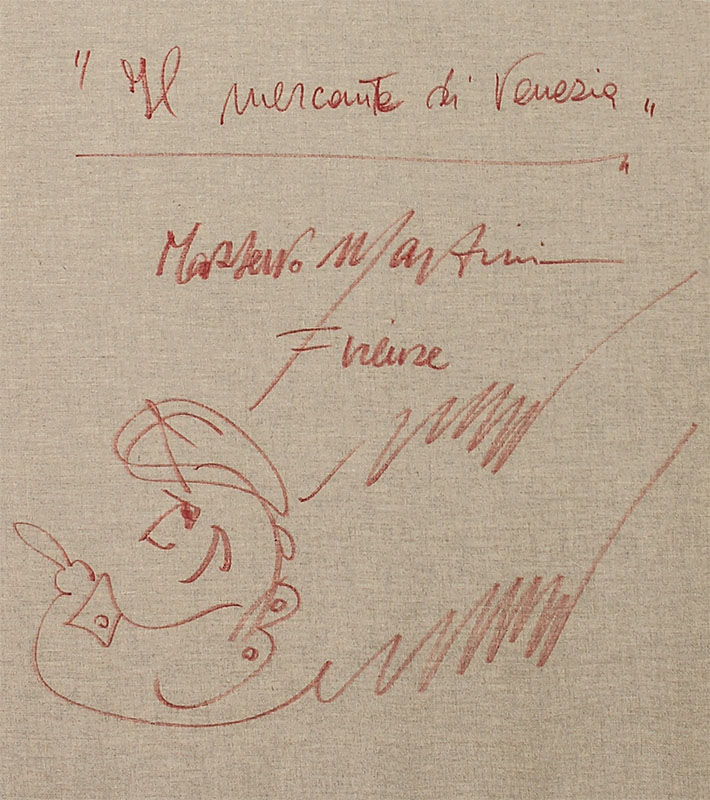 "Il mercante di Venezia"
Massimo Martini
Firenze